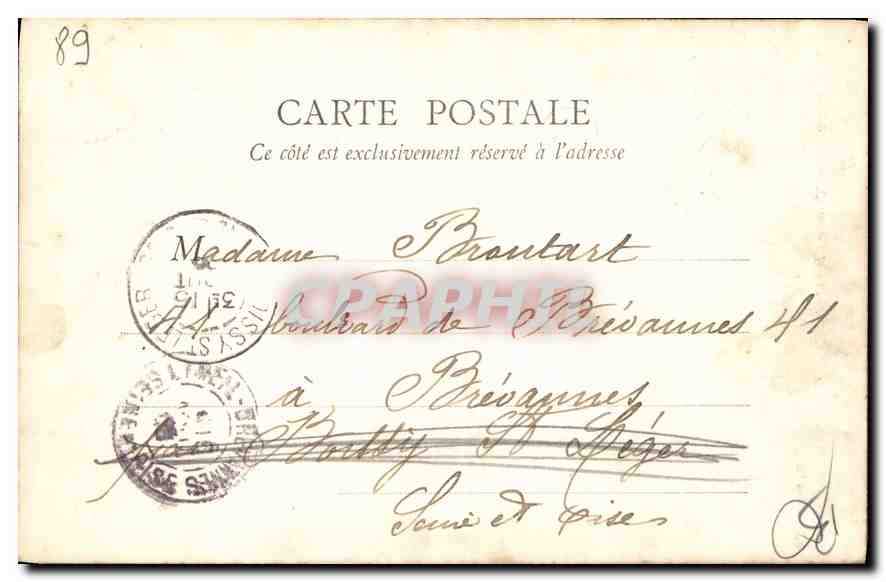 89
CARTE POSTALE
Ce côté est exclusivement réservé à l'adresse
Madame Broutart
41 boulvard de Brévannes 41
à Brévannes
par Boissy St Léger
Seine et Oise
CPAPHIL
BOISSY ST LEGER
LIMEIL-BREVANNES SEINE & OISE